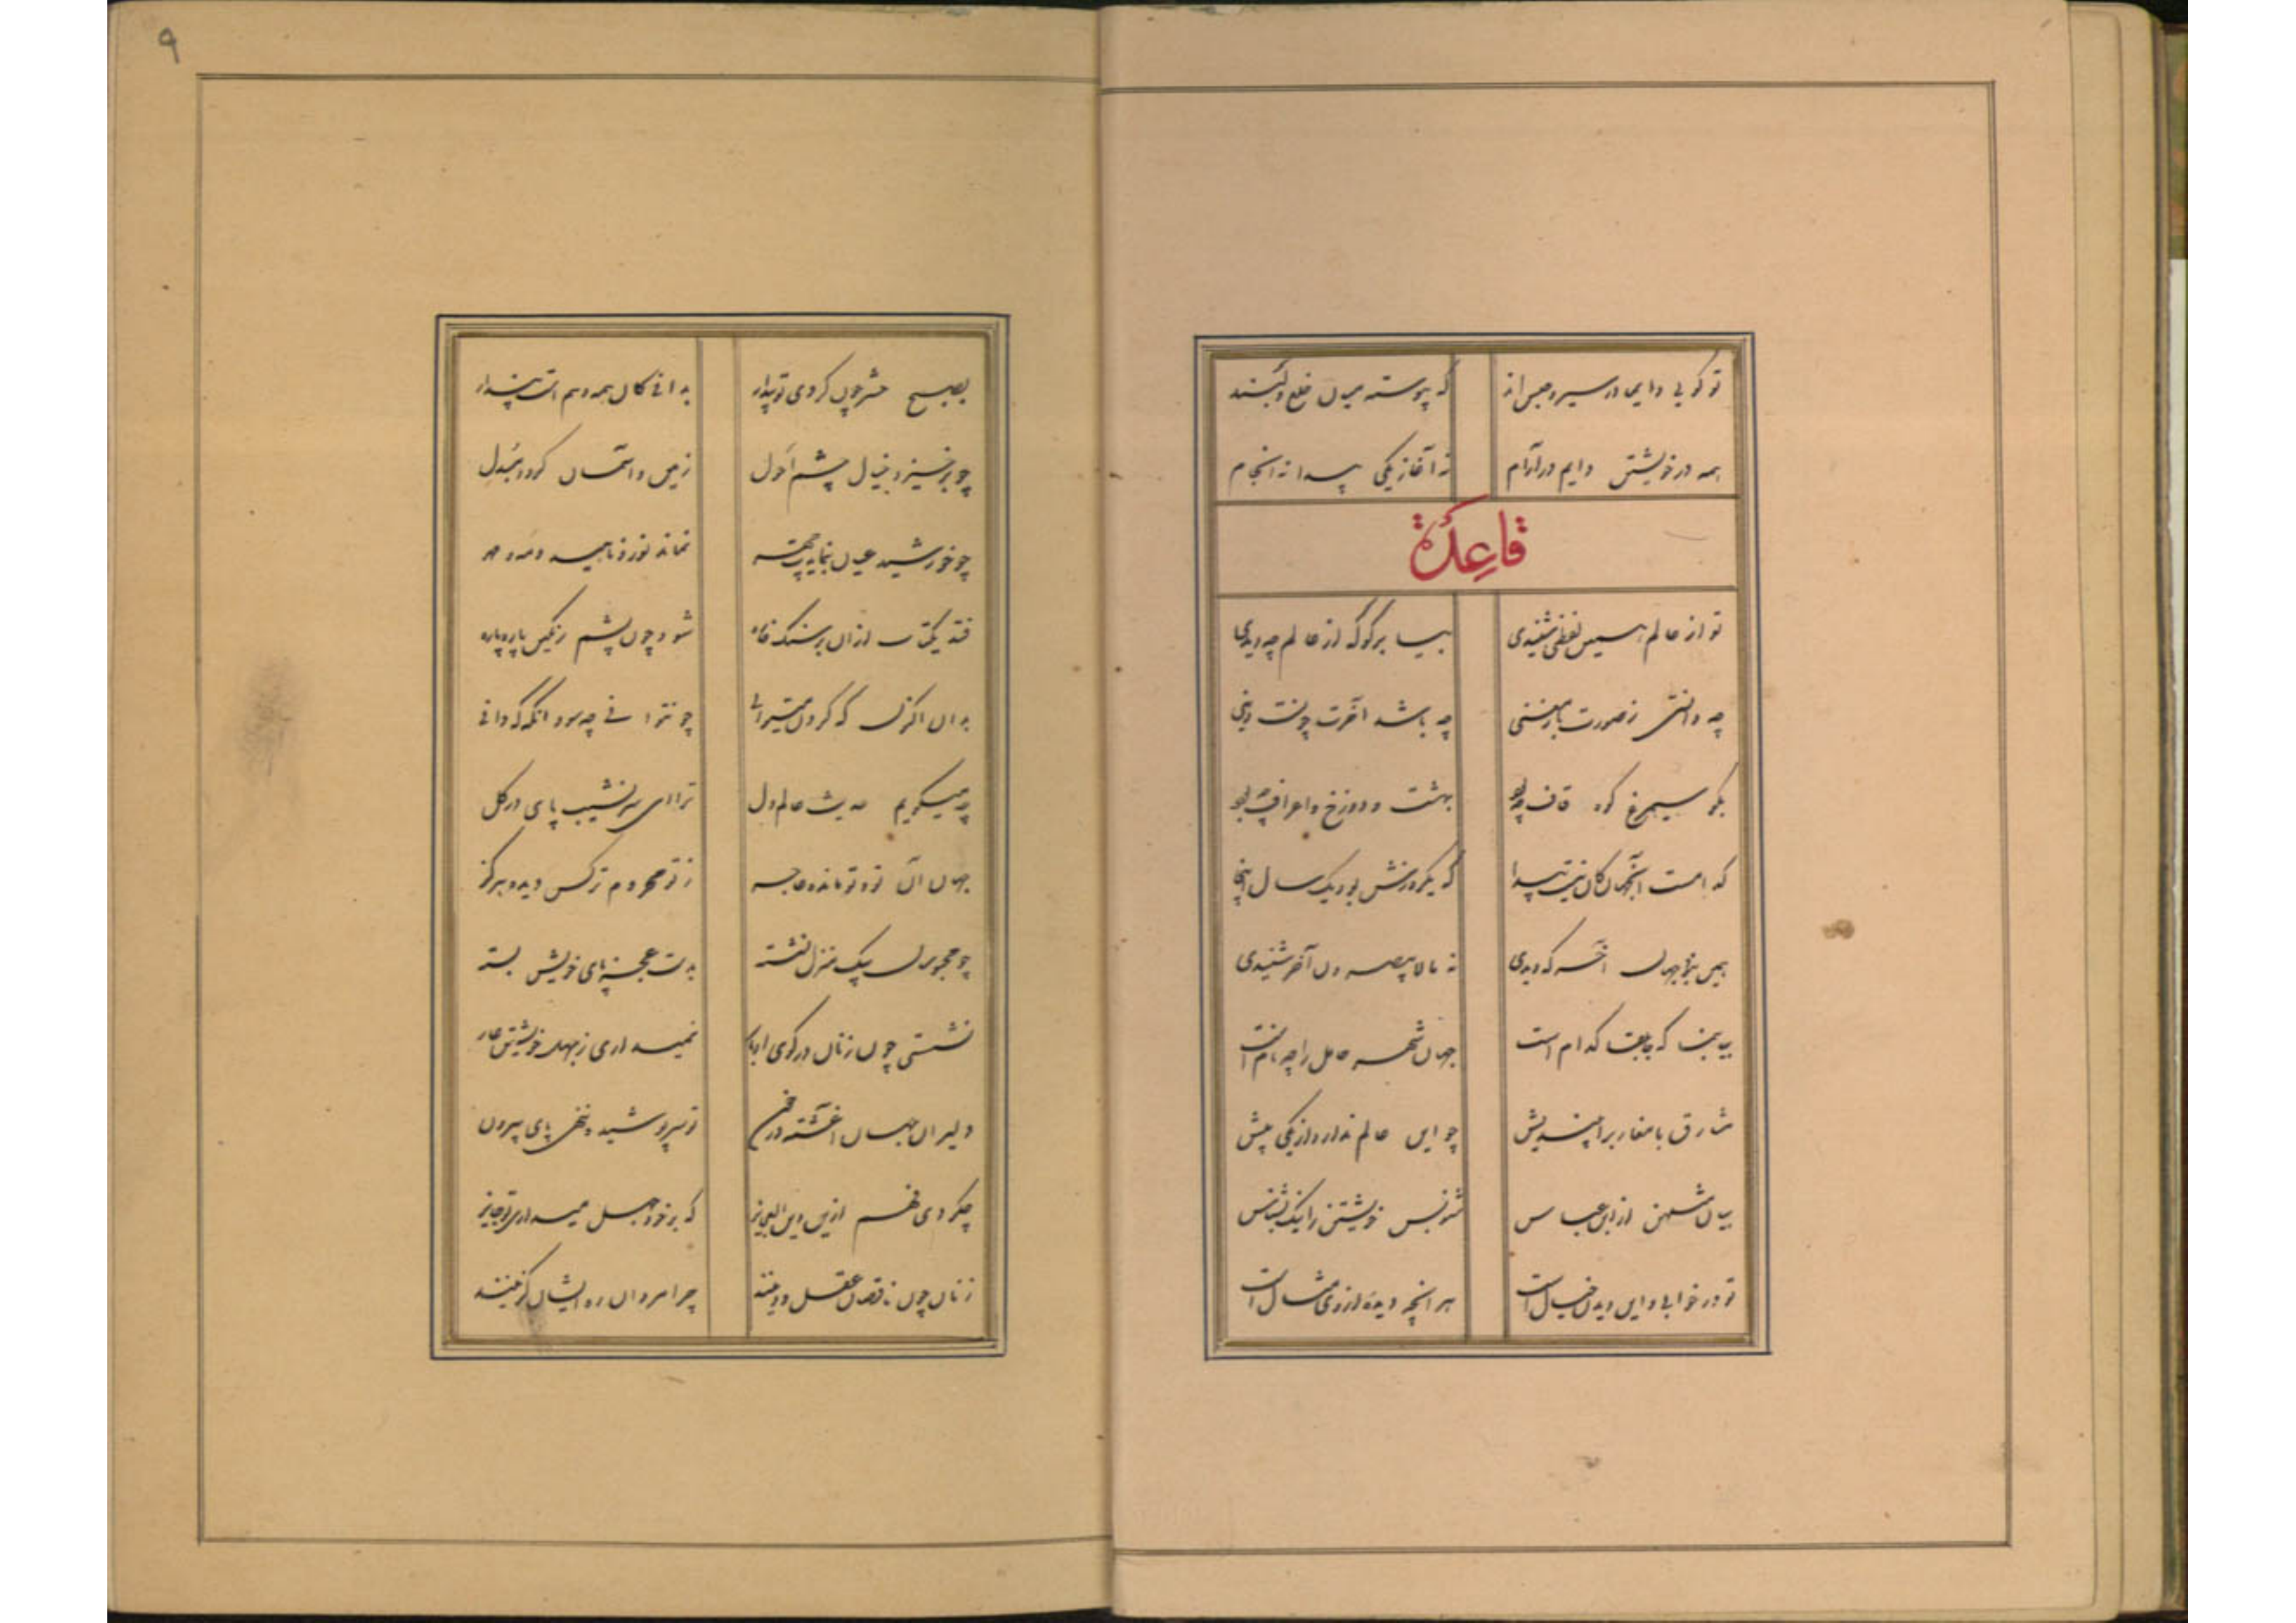 تو گویی دایما در سیر و حبس اند که پیوسته میان خلع و لبسند
همه در خویشتن دایم در آرام نه آغاز یکی پیدا نه انجام
قاعدة
تو از عالم همین لفظی شنیدی بیا برگو که از عالم چه دیدی
چه دانستی ز صورت یا ز معنی چه باشد آخرت چونست دنیی
بگو سیمرغ کوه قاف چه بود بهشت و دوزخ و اعراف چه بود
کدامست آنجهان کان نیست پیدا که یکروزش بود یک سال اینجا
همین نبود جهان آخر که دیدی نه ما لا یبصرون آخر شنیدی
بیا بنما که جابلقا کدام است جهان شهر چه نام است
مشارق با مغارب را بیندیش چو این عالم ندارد از یکی بیش
بیان مثلهن از ابن عباس شنو پس خویشتن را نیک بشناس
تو در خوابی و این دیدن خیال است هر آنچه دیدهٔ از وی مثال است
۹
بصبح حشر چون کردی تو بیدار بدانی کان همه وهم است پندار
چو برخیزد خیال چشم احول زمین و آسمان گردد مبدل
چو خورشید عیان بنمایدت چهر نماند نور ناهید و مه و مهر
فتد یکتاب از آن بر سنگ خاره شود چون پشم رنگین پاره پاره
بدان اکنون که کردن میتوانی چو نتوانی چه سود آنگه که دانی
چه میگویم حدیث عالم دل ترا ای سرنشیب پای در گل
جهان آن تو و تو مانده عاجز ز تو محروم تر کس دیده هرگز
چو محبوسان بیک منزل نشسته بدست عجز پای خویش بسته
نشستی چون زنان در کوی ادبار نمیداری ز جهل خویشتن عار
دلیران جهان آغشته در خون تو سرپوشیده ننهی پای بیرون
چه کردی فهم ازین دین العجایز که بر خود جهل میداری تو جایز
زنان چون ناقصان عقل و دینند چرا مردان ره ایشان گزینند